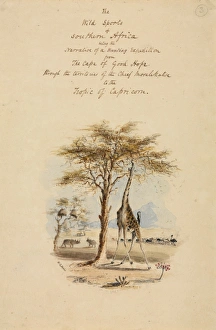 The
Wild Sports
of
Southern Africa
being the
Narrative of a Hunting Expedition
from
The Cape of Good Hope
through the territories of the Chief Moselekatse
to the
Tropic of Capricorn.